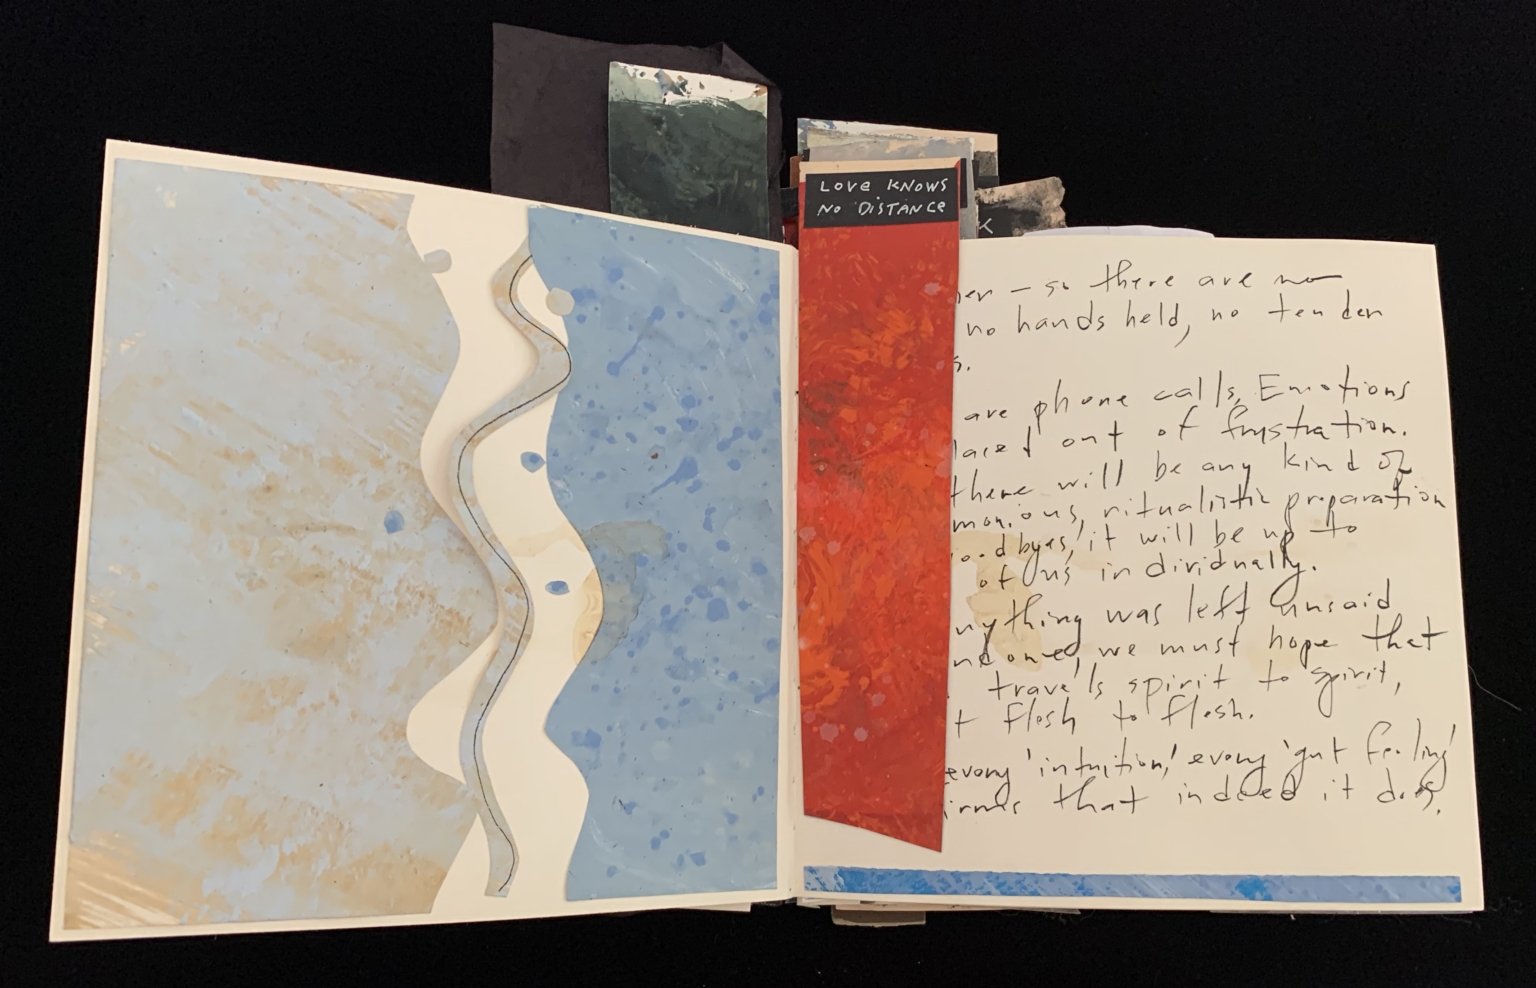 LOVE KNOWS
NO DISTANCE
K
er – so there are no
no hands held, no tender
s.
are phone calls, Emotions
laced out of frustration.
there will be any kind of
monious, ritualistic preparation
oodbyes,' it will be up to
of us individually.
nything was left unsaid
one, we must hope that
travels spirit to spirit,
t flesh to flesh.
every 'intuition,' every 'gut feeling'
irms that indeed it does.